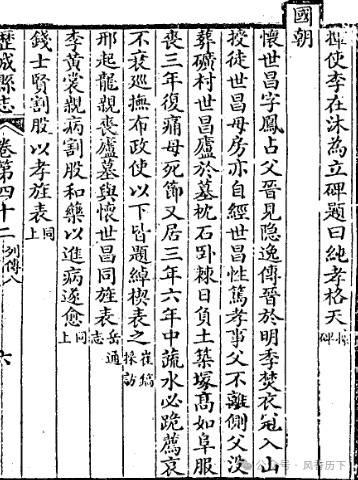 揮使李在沐為立碑題曰純孝格天 碑
國朝
懷世昌字鳳占父晉見隐逸傳晉於明季焚衣冠入山
授徒世昌母房亦自經世昌性篤孝事父不離側父没
葬礦村世昌廬於墓枕石卧棘日負土築塚高如阜服
喪三年復痛母死節又居三年六年中蔬水必跪薦哀
不衰巡撫布政使以下皆題綽楔表之 崔鎬採訪
邢起龍親喪廬墓與懷世昌同旌表 岳通志
李黄裳親病割股和藥以進病遂愈 同上
錢士賢割股以孝旌表 同上
歷城縣志 卷第四十二 列傳八 六
公众号·风昔历下